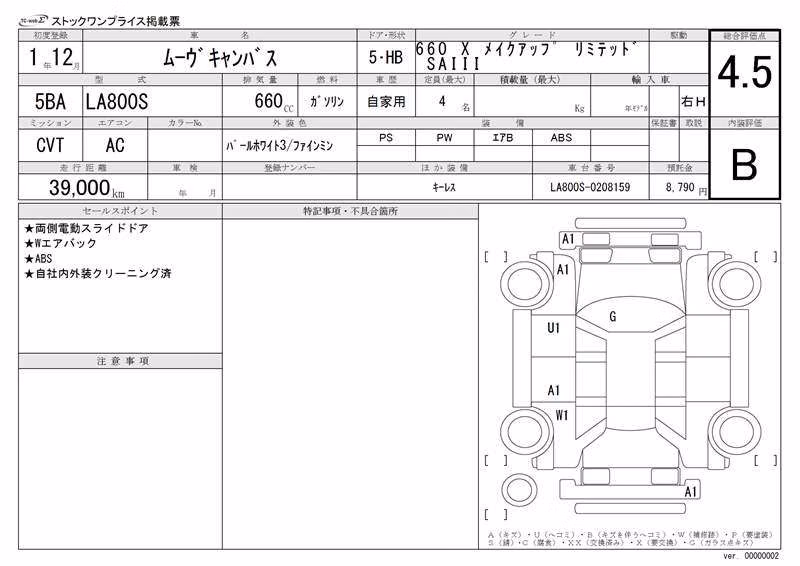 TC-webΣ ストックワンプライス掲載票
初度登録 車 名 ドア・形状 グ レ ー ド 駆動 総合評価点
1 年 12 月 ムーヴキャンバス 5・HB 660 X メイクアップ リミテッド SAIII 4.5
型 式 排 気 量 燃 料 車 歴 定員(最大) 積載量（最大） 輸 入 車
5BA LA800S 660 CC ガソリン 自家用 4 名 Kg 年モデル 右H
ミッション エアコン カラーNo. 外 装 色 装 備 保証書 取説 内装評価
CVT AC パールホワイト3/ファインミン PS PW エアB ABS B
走 行 距 離 車 検 登録ナンバー ほ か 装 備 車 台 番 号 預託金
39,000 km 年 月 キーレス LA800S-0208159 8,790 円
セールスポイント 特記事項・不具合箇所
★両側電動スライドドア
★Wエアバック
★ABS
★自社内外装クリーニング済
注 意 事 項
A1
[ ] A1 [ ]
G
U1
A1
W1
[ ] [ ]
A1
[ ]
A（キズ）・U（ヘコミ）・B（キズを伴うヘコミ）・W（補修跡）・P（要塗装）
S（錆）・C（腐食）・XX（交換済み）・X（要交換）・G（ガラス点キズ）
ver. 00000002